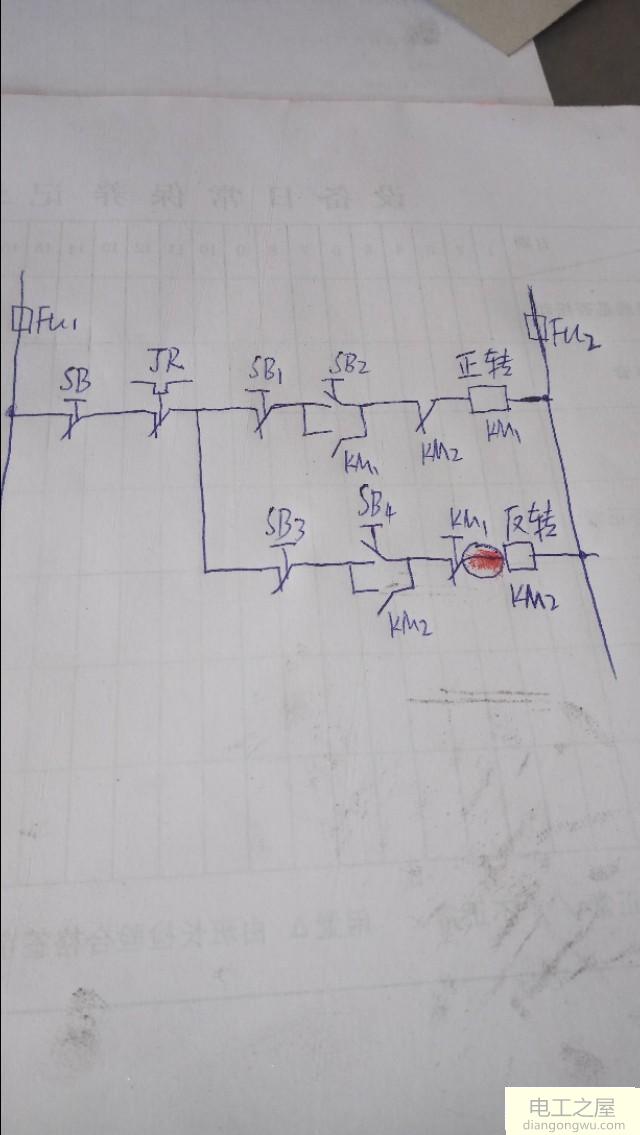 设备日常保养记
Fu1
Fu2
SB
JR
SB1
SB2
正转
KM1
KM2
KM1
SB3
SB4
KM1
反转
KM2
KM2
电工之屋
diangongwu.com